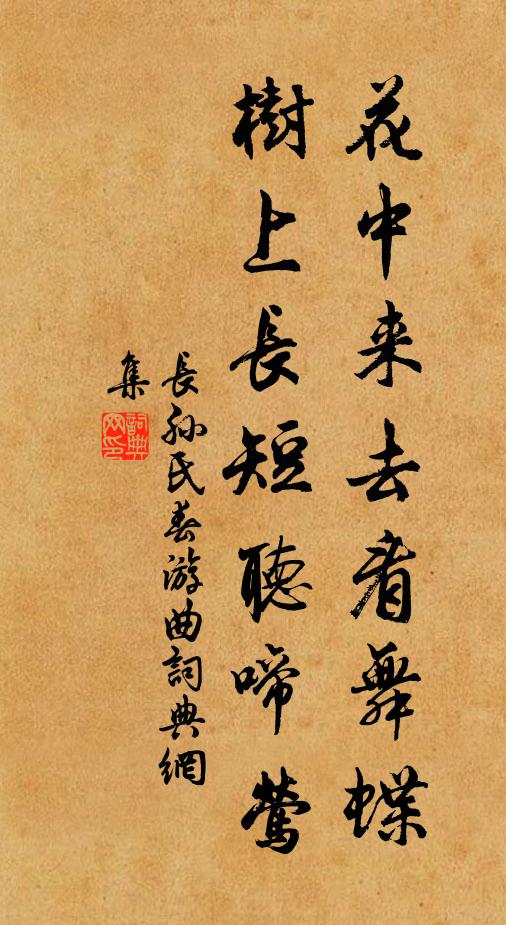 花中来去看舞蝶
樹上長短聽啼鶯
長孫氏春游曲詞典網
集
詞典
网印